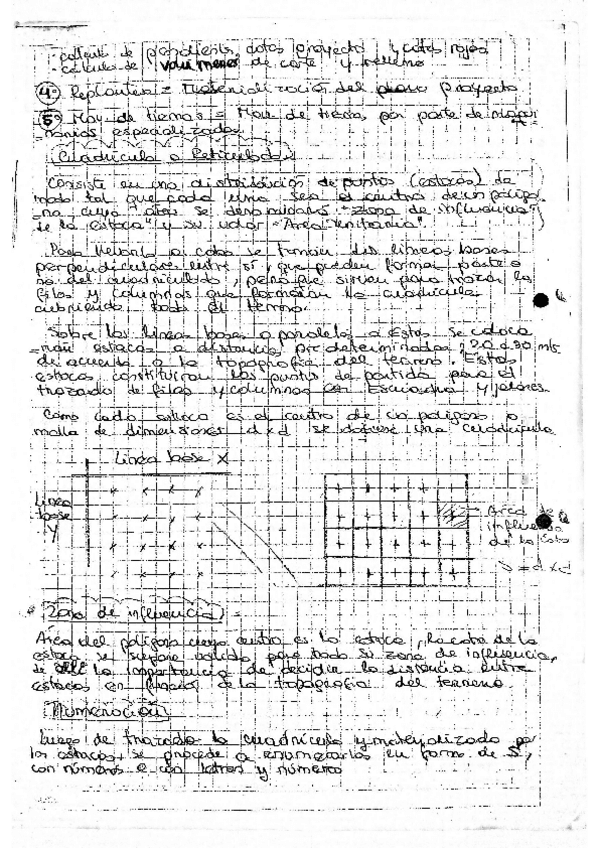 - calculo de pendiente, cotas proyecto y cotas rojas
- calculo de volumenes de corte y relleno
4º) Replanteo = Materialización del plano proyecto
5º) Mov de tierras = Mov de tierra por parte de maqui
narias especializadas
Cuadricula o Reticulado
Consiste en una distribución de puntos (estacas) de
modo tal que cada una sea el centro de un poligo
no cuya area se denominara "zona de influencia
de la estaca" y su valor "Area Unitaria".
Para llevarla a cabo se forman dos lineas bases
perpendiculares entre sí, que pueden formar parte o
no del cuadriculado, pero que sirven para trazar las
filas y columnas que formaran la cuadricula
cubriendo todo el terreno.
Sobre las lineas bases o paralelas a éstas se coloca
ran estacas a distancias predeterminadas, 20 a 30 mts
de acuerdo a la topografia del terreno. Estas
estacas constituiran los puntos de partida para el
trazado de filas y columnas con Escuadra y jalones.
Como cada estaca es el centro de un poligono o
malla de dimensiones d x d se obtiene una cuadricula
Linea base X
Linea
base
Y
Area de
influencia
de la cota
S = d x d
Zona de influencia =
Area del poligono cuyo centro es la estaca, la cota de la
estaca se supone valida para toda su zona de influencia,
de alli la importancia de decidir la distancia entre
estacas en función de la topografia del terreno.
Numeración
Luego de trazada la cuadricula y materializada por
las estacas, se procede a enumerarlas en forma de S,
con números o con letras y números